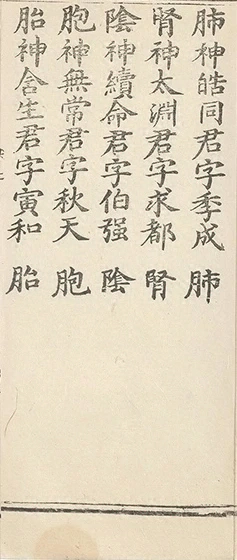 肺神皓同君字季成　肺
腎神太淵君字求都　腎
陰神續命君字伯强　陰
胞神無常君字秋天　胞
胎神含生君字寅和　胎